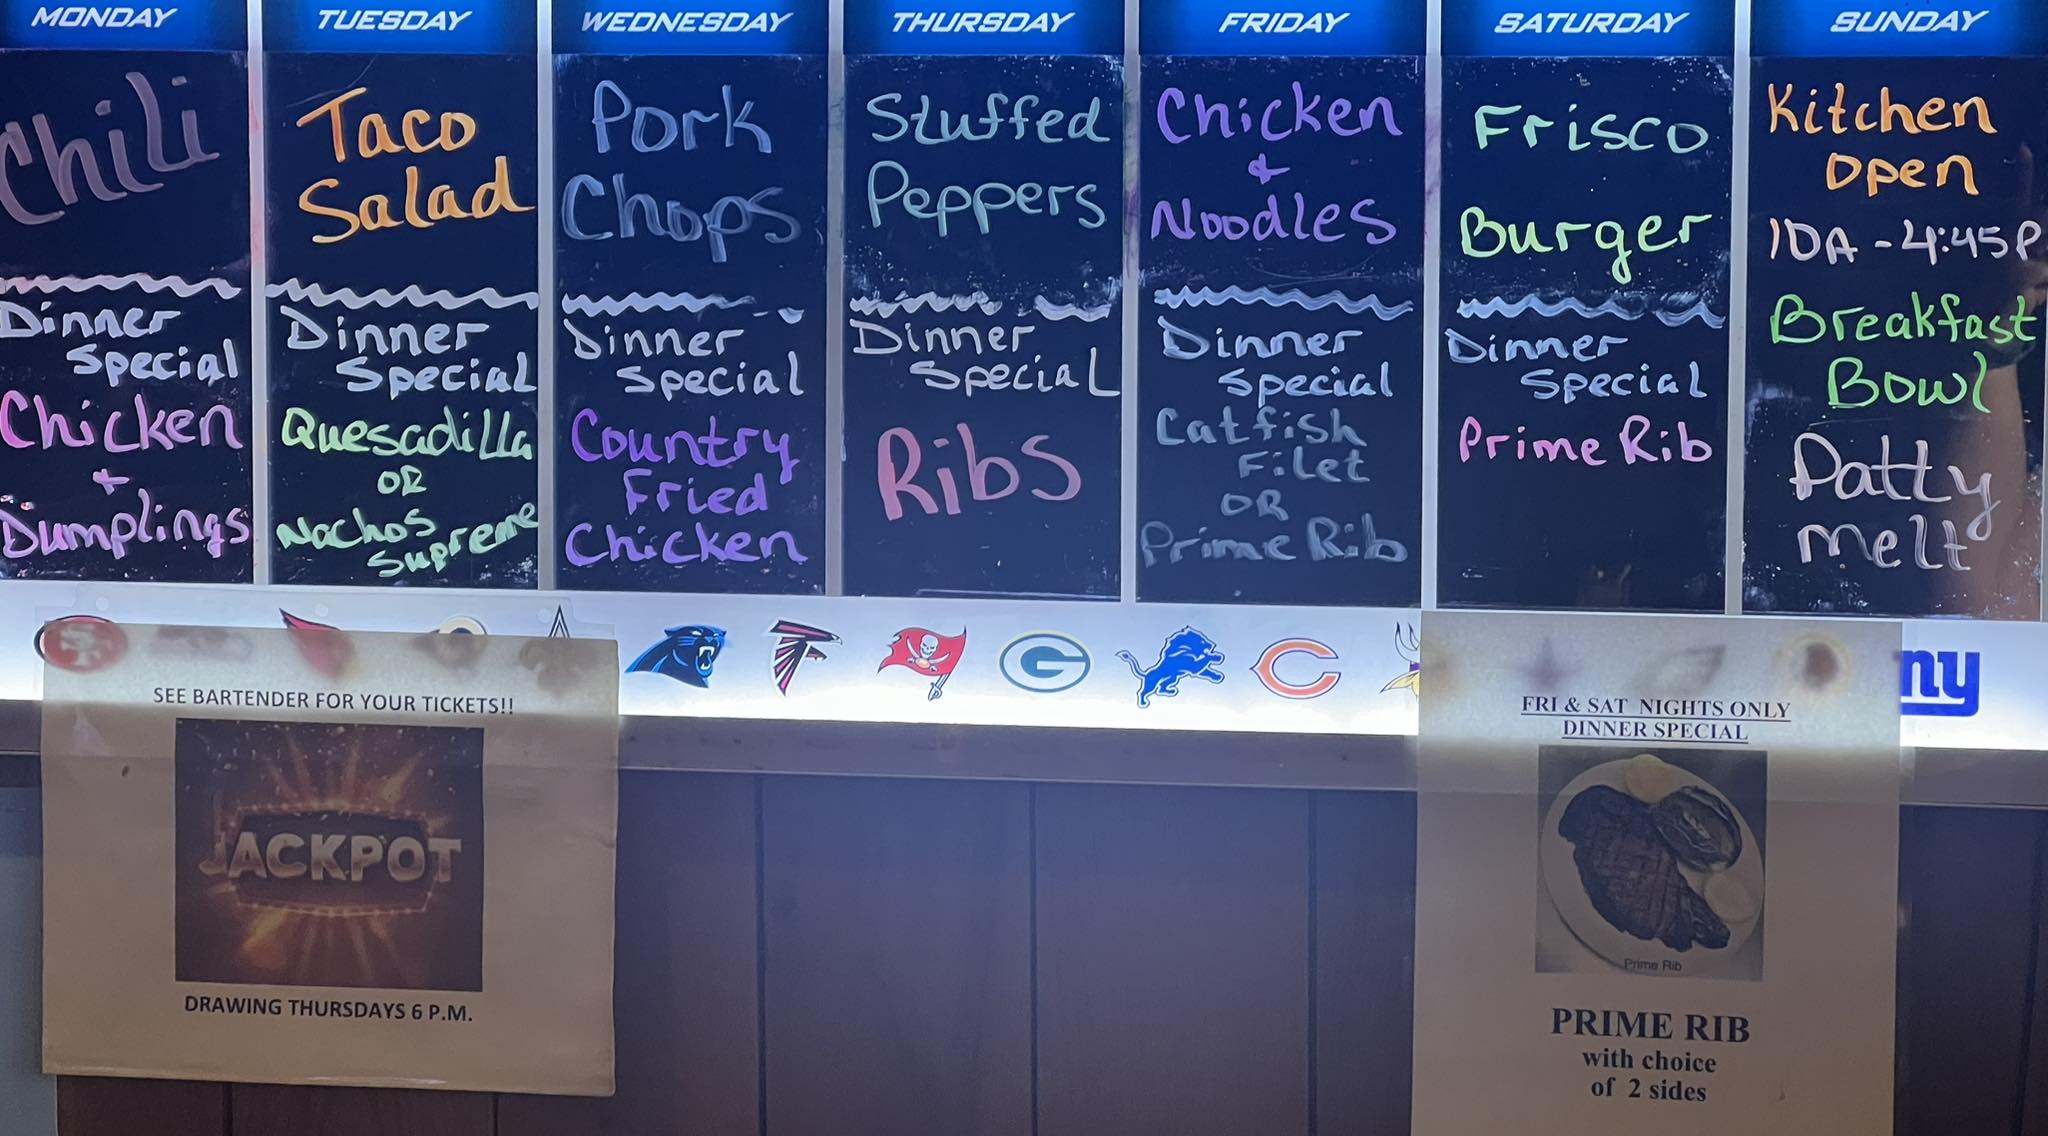 MONDAY
Chili
Dinner
Special
Chicken
+
Dumplings
TUESDAY
Taco
Salad
Dinner
Special
Quesadilla
OR
Nachos
Supreme
WEDNESDAY
Pork
Chops
Dinner
Special
Country
Fried
Chicken
THURSDAY
Stuffed
Peppers
Dinner
Special
Ribs
FRIDAY
Chicken
&
Noodles
Dinner
Special
Catfish
Filet
OR
Prime Rib
SATURDAY
Frisco
Burger
Dinner
Special
Prime Rib
SUNDAY
Kitchen
Open
10A - 4:45P
Breakfast
Bowl
Patty
Melt
SF
G
C
ny
SEE BARTENDER FOR YOUR TICKETS!!
JACKPOT
DRAWING THURSDAYS 6 P.M.
FRI & SAT NIGHTS ONLY
DINNER SPECIAL
Prime Rib
PRIME RIB
with choice
of 2 sides